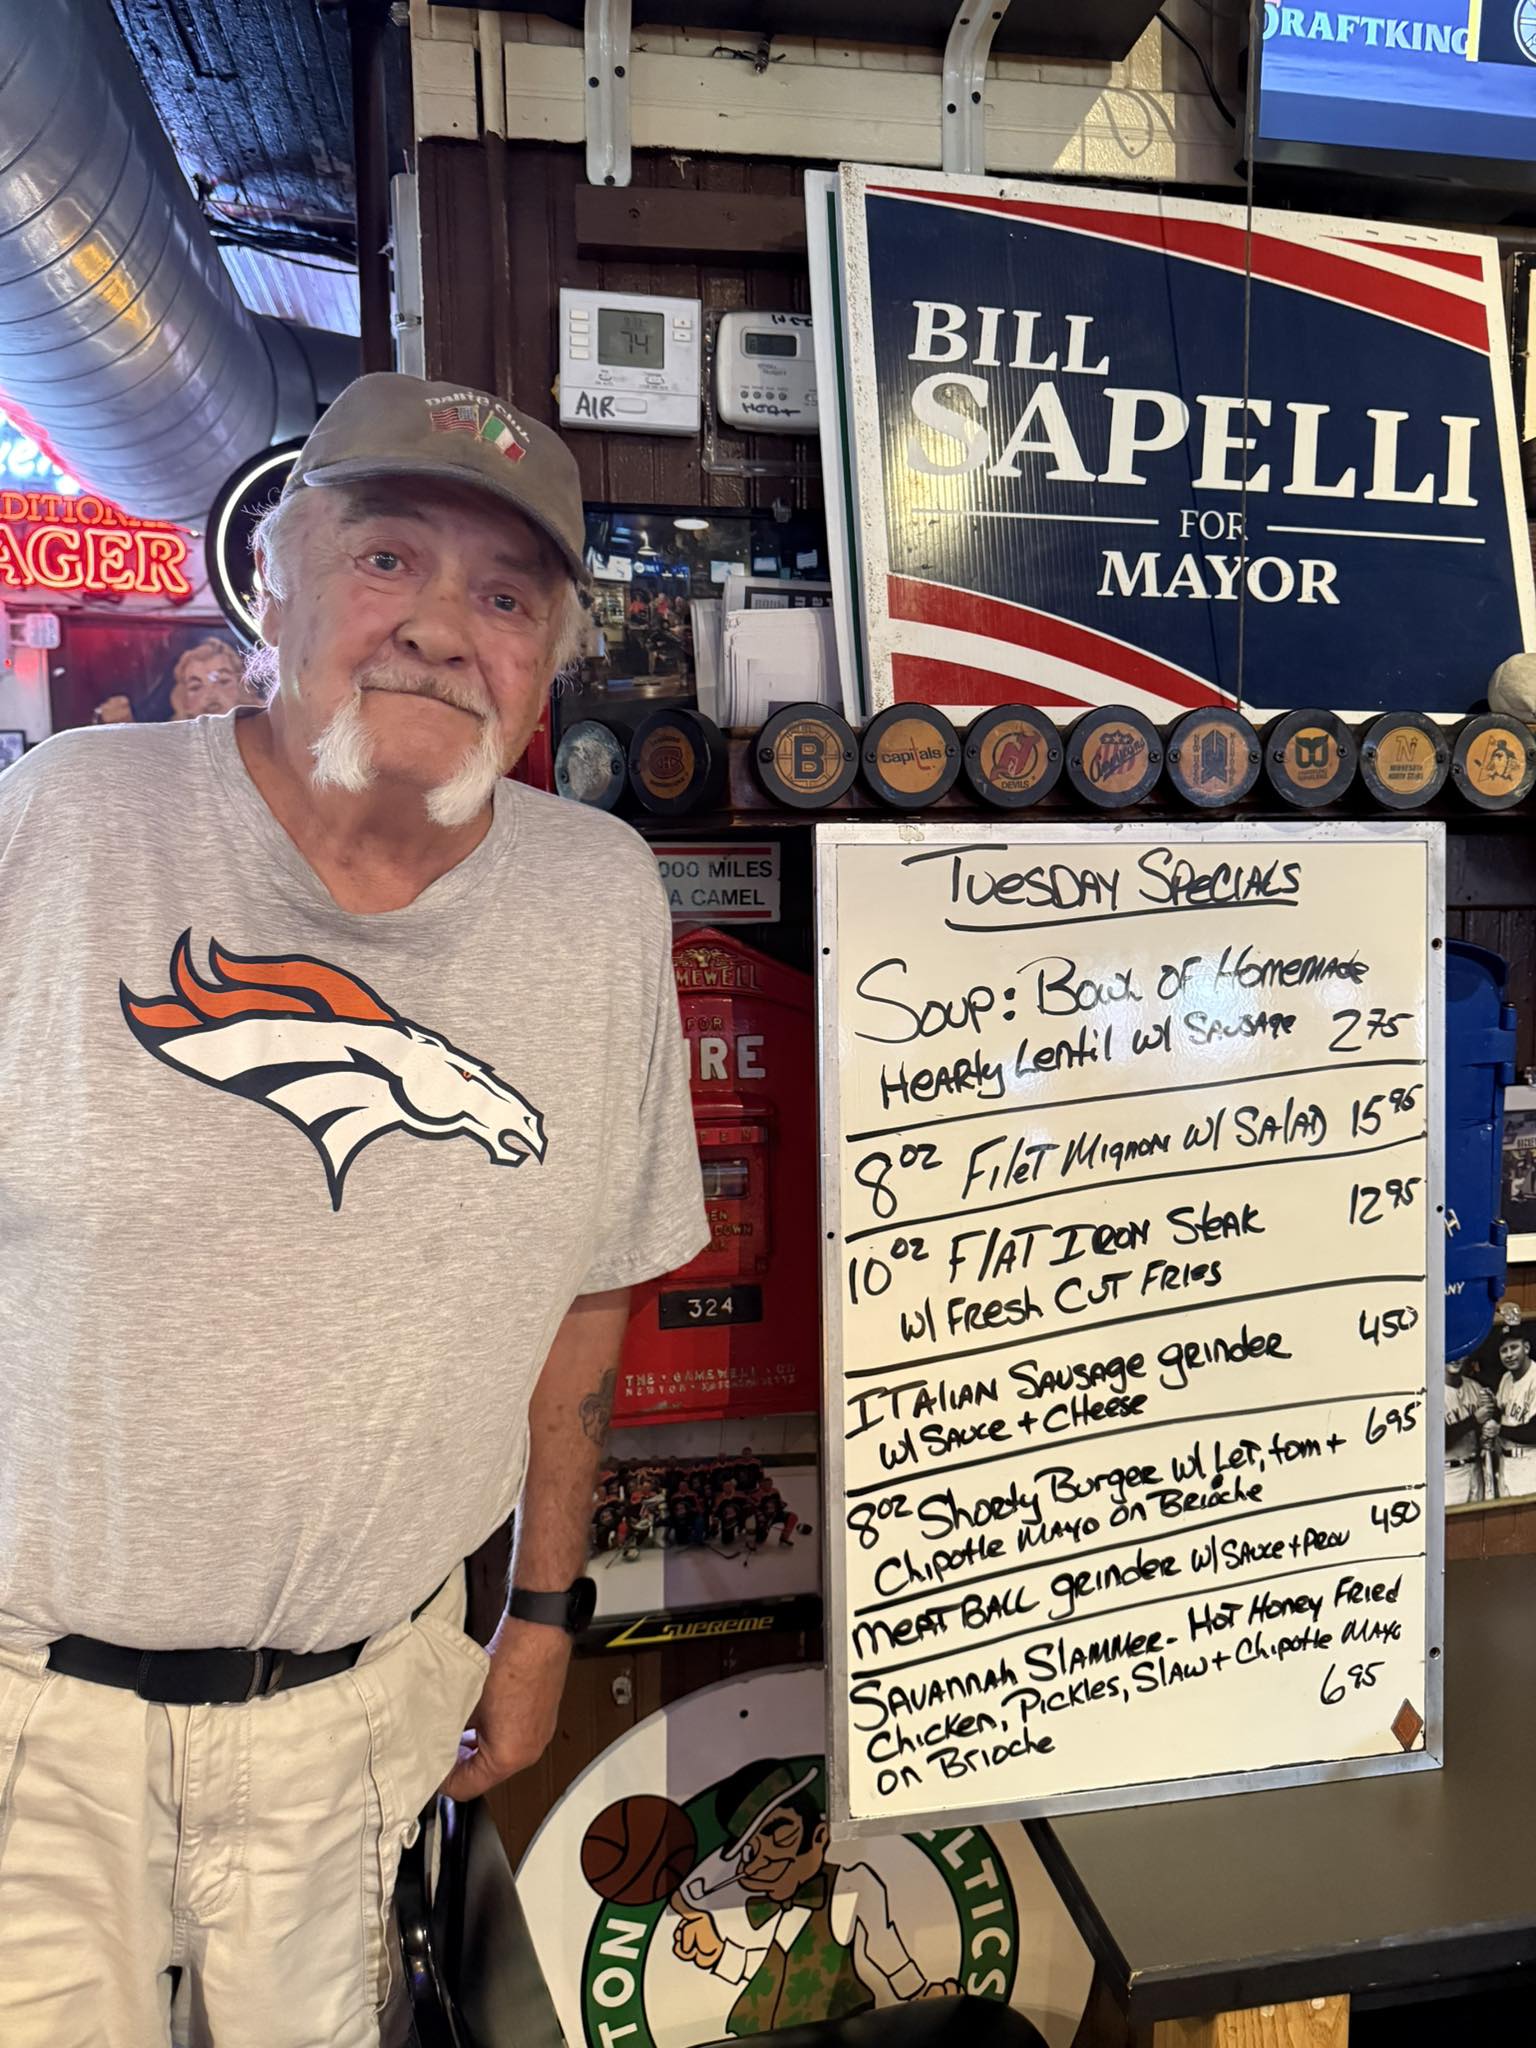 DRAFTKING
BILL
SAPELLI
FOR
MAYOR
74
AIR
HEAT
DITIONA
AGER
B
capitals
DEVILS
000 MILES
A CAMEL
TUESDAY SPECIALS
SOUP: BOWL OF HOMEMADE
HEARTY LENTIL W/ SAUSAGE 2 75
8 OZ FILET MIGNON W/ SALAD 15 95
10 OZ FLAT IRON STEAK 12 95
W/ FRESH CUT FRIES
ITALIAN SAUSAGE GRINDER 4 50
W/ SAUCE + CHEESE
8 OZ SHORTY BURGER W/ LET, TOM + 6 95
CHIPOTLE MAYO ON BRIOCHE
MEATBALL GRINDER W/ SAUCE + PROV 4 50
SAVANNAH SLAMMER - HOT HONEY FRIED
CHICKEN, PICKLES, SLAW + CHIPOTLE MAYO
ON BRIOCHE 6 95
MEWELL
FOR
IRE
324
THE GAMEWELL CO
SUPREME
TON
LTICS